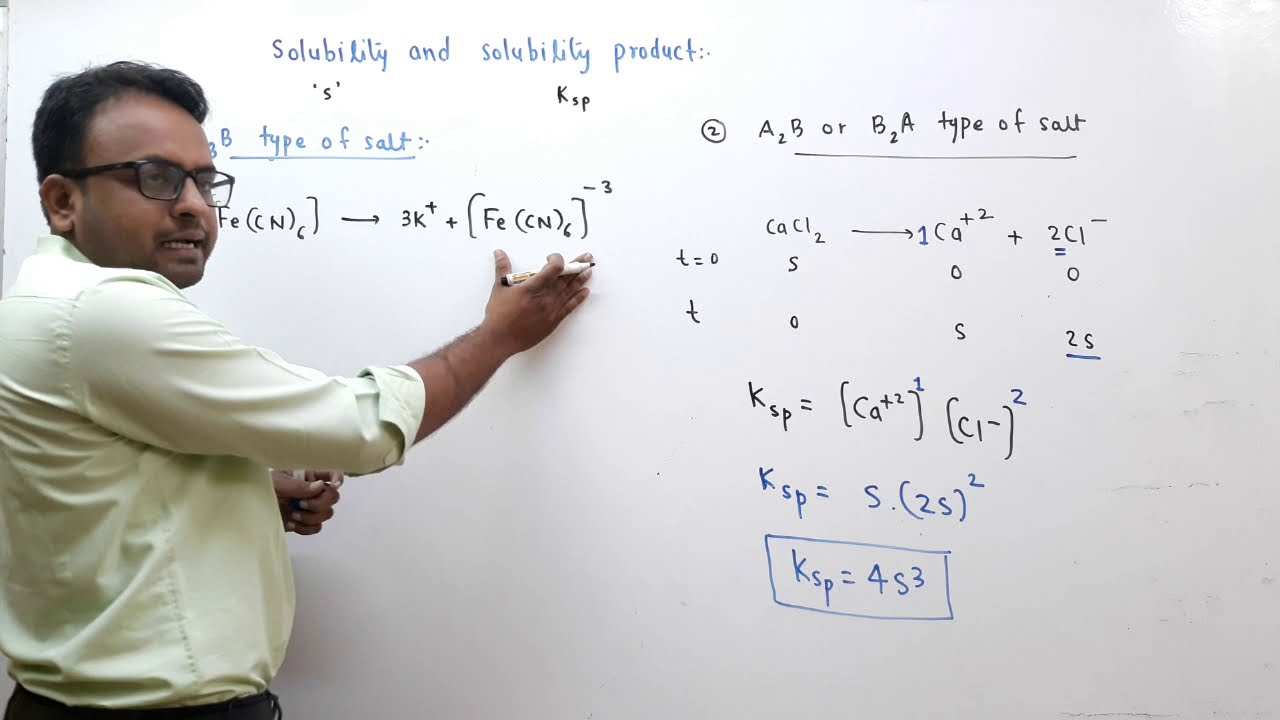 Solubility and solubility product:-
's' Ksp
₃B type of salt:-
Fe(CN)₆] ⟶ 3K⁺ + [Fe(CN)₆]⁻³
② A₂B or B₂A type of salt
CaCl₂ ⟶ 1Ca⁺² + 2Cl⁻
t=0 S 0 0
t 0 S 2S
Ksp = [Ca⁺²]¹ [Cl⁻]²
Ksp = S.(2S)²
Ksp = 4S³